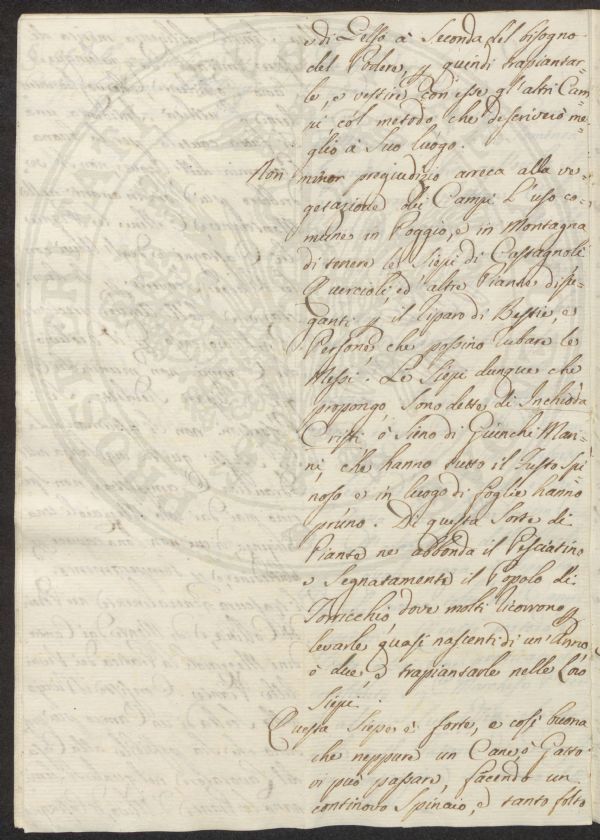 e di Gelso à Seconda del bisogno
del Podere, e quindi trapiantar=
le, e vestire con esse gl'altri Cam=
pi col metodo che descriverò me=
glio à Suo luogo.
Non minor pregiudizio arreca alla ve=
getazione dei Campi l'uso co=
mune in Poggio, e in Montagna
di tenere le Siepi di Castagnoli
Quercioli, ed altre Piante dispe=
ganti p il riparo di Bestie, e
Persone, che possino rubare le
Messi. Le Siepi dunque che
propongo, sono dette di Inchioda
Cristi ò sieno di Giunchi Mari=
ni, che hanno tutto il fusto spi=
noso e in luogo di foglie hanno
pruno. Di questa Sorte di
Piante ne abbonda il Pesciatino
e Segnatamente il Popolo di
Torricchio, dove molti ricorrono p
levarle quasi nascenti di un'Anno
ò due, e trapiantarle nelle Loro
Siepi.
Questa Siepe è forte, e così buona
che neppure un Cane, ò Gatto
vi può passare, facendo un
continovo Spinaio, e tanto folto